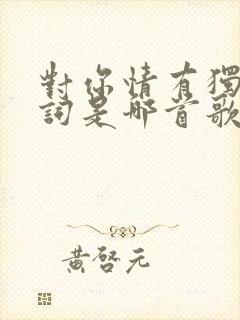 對你情有獨
詞是哪首歌
黃啓元